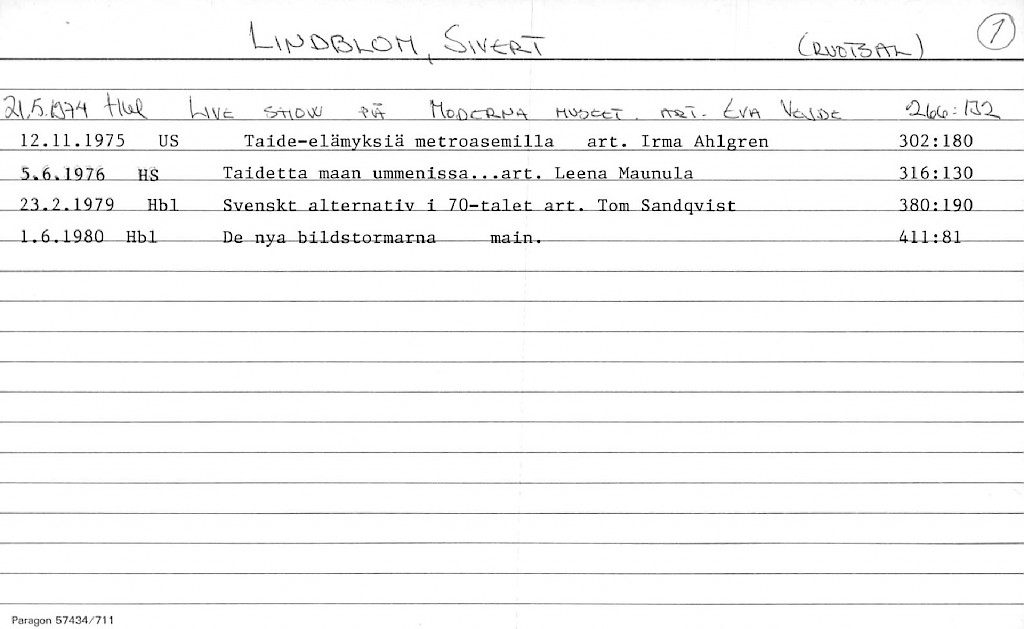 LINDBLOM, SIVERT (RUOTSAL) 1
21.5.1974 Hbl LIVE SHOW PÅ MODERNA MUSEET. ART. EVA 266:132
12.11.1975 US Taide-elämyksiä metroasemilla art. Irma Ahlgren 302:180
5.6.1976 HS Taidetta maan ummenissa...art. Leena Maunula 316:130
23.2.1979 Hbl Svenskt alternativ i 70-talet art. Tom Sandqvist 380:190
1.6.1980 Hbl De nya bildstormarna main. 411:81
Paragon 57434/711